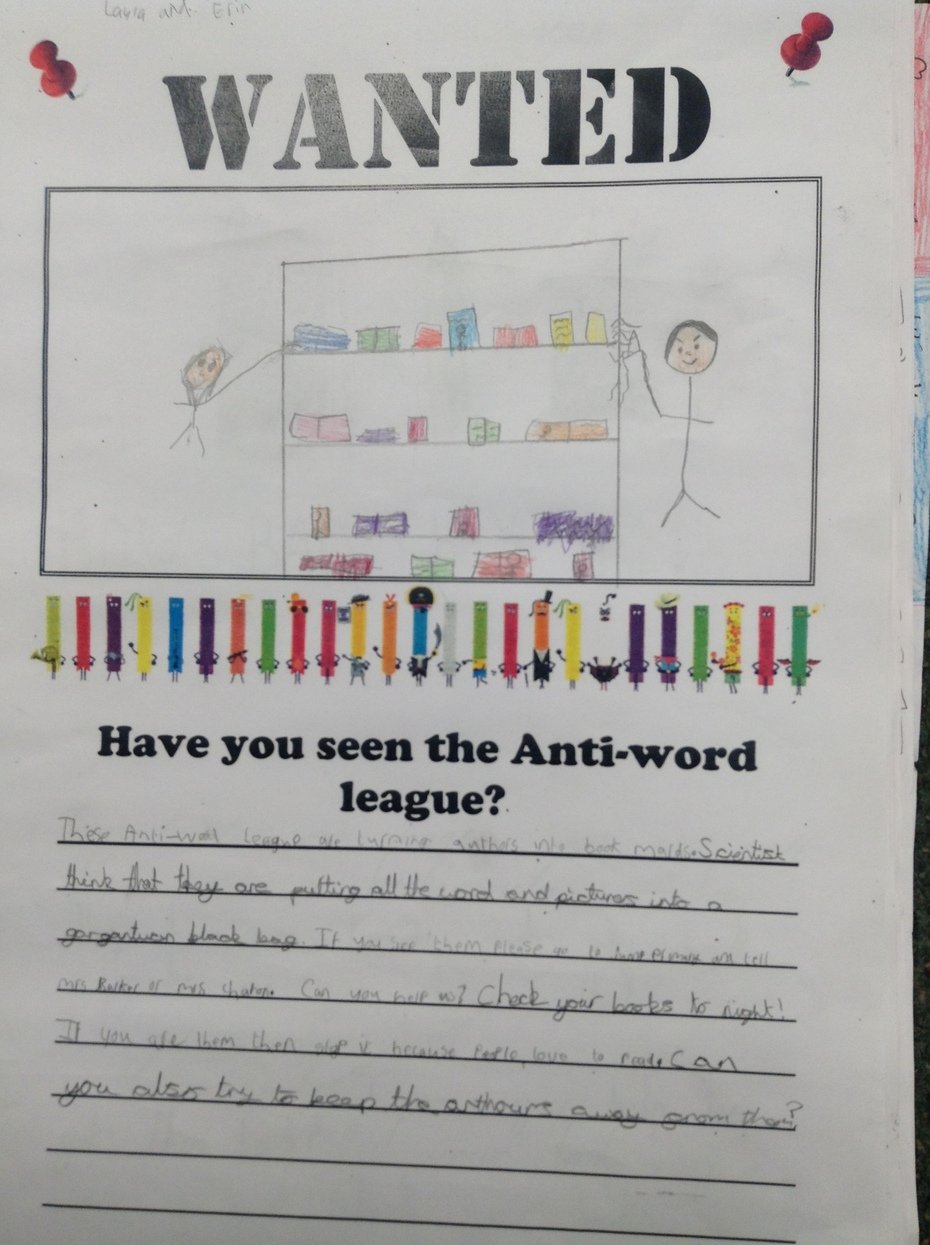 Layla and Erin
WANTED
Have you seen the Anti-word
league?
These Anti-word league are turning authors into book maids. Scientist
think that they are putting all the word and pictures into a
gargantuan black bag. If you see them please go to Primary and tell
mrs Barker or mrs Can you help us? Check your books to night!
If you are them then stop it because People love to read. Can
you also try to keep the arthours away from them?